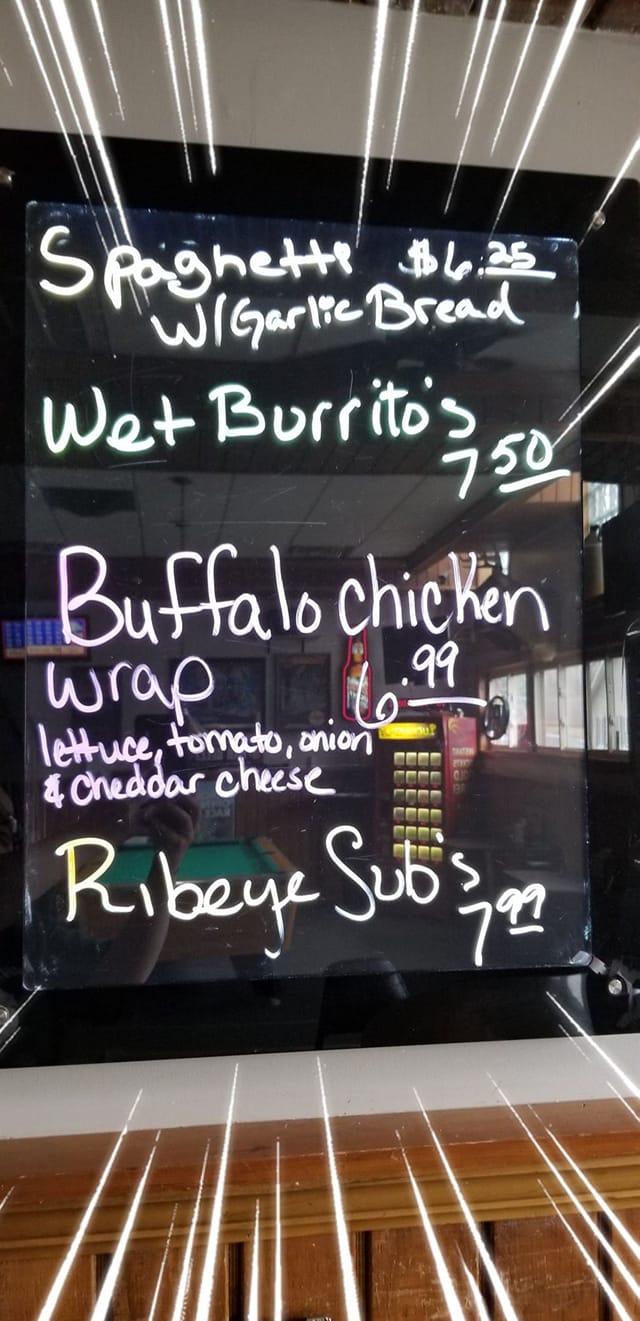 Spaghetti $6.25
W/Garlic Bread
Wet Burrito's
7 50
Buffalo chicken
wrap 6.99
lettuce, tomato, onion
& cheddar cheese
Ribeye Sub's
7 99